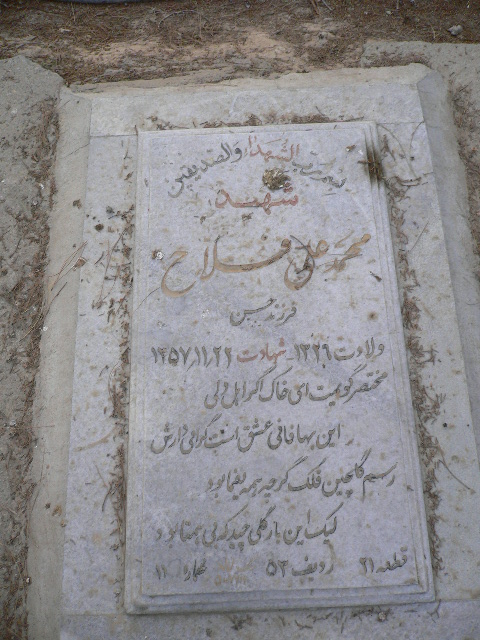 بسم رب الشهداء والصدیقین
شهید
محمد علی فلاح
فرزند حسین
ولادت ۱۳۲۶ شهادت ۱۳۵۷/۱۱/۲۲
مختصر گویمت ای خاک گر اهل دلی
این بها فانی عشق است گرامی دارش
رسم گلچین فلک گرچه همه یغما بود
لیک این بار گلی چید که بی همتا بود
قطعه ۲۱ ردیف ۵۲ شماره ۱۱